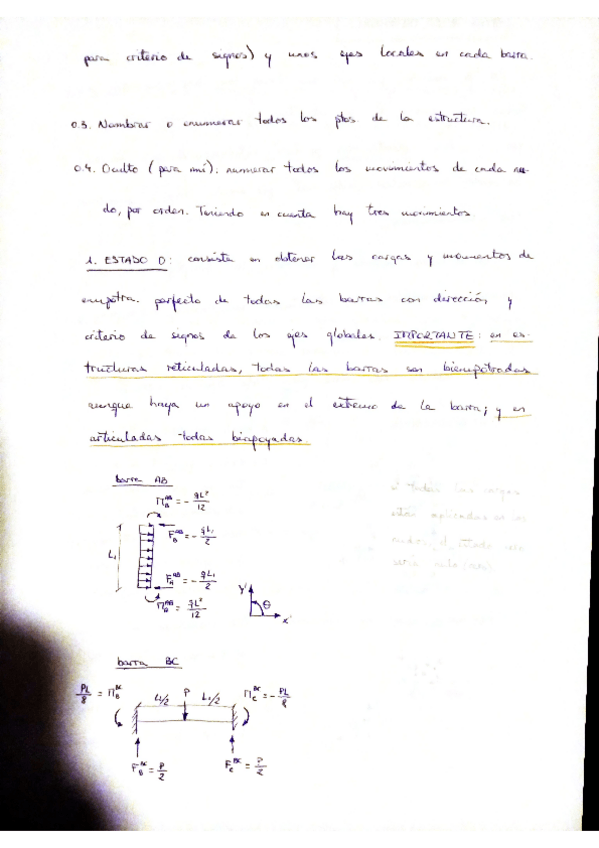 para criterio de signos) y unos ejes locales en cada barra.
0.3. Nombrar o enumerar todos los ptos de la estructura.
0.4. Oculto (para mi). numerar todos los movimientos de cada nu-
do, por orden. Teniendo en cuenta hay tres movimientos
1. ESTADO 0: consista en obtener las cargas y momentos de
empotra. perfecto de todas las barras con dirección y
criterio de signos de los ejes globales. IMPORTANTE: en es-
tructuras reticuladas, todas las barras son biempotradas
aunque haya un apoyo en el extremo de la barra; y en
articuladas todas biapoyadas
barra AB
M_B^AB = - qL²/12
F_B^AB = - qL₁/2
L₁
F_A^AB = - qL₁/2
M_A^AB = qL²/12
y' θ x'
barra BC
PL/8 = M_B^BC L₁/2 P L₁/2 M_C^BC = - PL/8
F_B^BC = P/2 F_C^BC = P/2